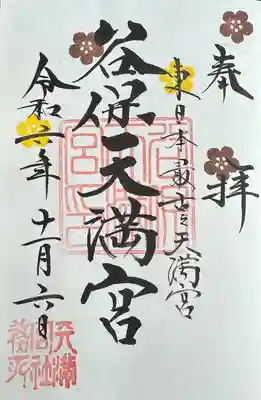 奉拝
東日本最古之天満宮
谷保天満宮
令和六年十一月六日
天満宮社務所